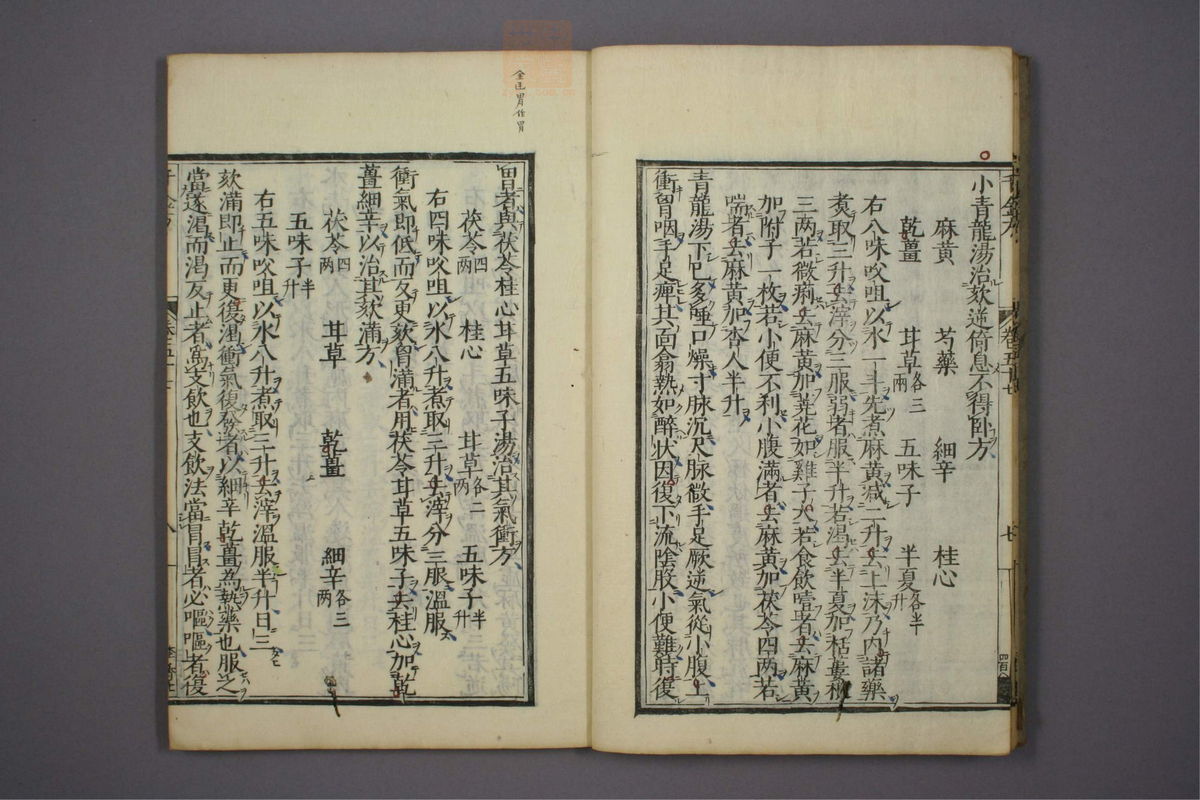 小青龍湯治欬逆倚息不得臥方
麻黄 芍藥 細辛 桂心
乾薑 甘草各三兩 五味子 半夏各半升
右八味㕮咀以水一斗先煮麻黄減二升去上沫乃内諸藥
煮取三升去滓分三服弱者服半升若渴去半夏加栝蔞根
三两若微痢去麻黄加蕘花如雞子大若食飲噎者去麻黄
加附子一枚若小便不利小腹滿者去麻黄加茯苓四两若
喘者去麻黄加杏人半升
青龍湯下已多唾口燥寸脉沉尺脉微手足厥逆氣從小腹上
衝胷咽手足痺其面翕熱如醉状因復下流陰股小便難時復
冒者與茯苓桂心甘草五味子湯治其氣衝方
茯苓四两 桂心 甘草各二两 五味子半升
右四味㕮咀以水八升煮取三升去滓分三服溫服
衝氣即低而反更欬胷滿者用茯苓甘草五味子去桂心加乾
薑細辛以治其欬滿方
茯苓四两 甘草 乾薑 細辛各三两
五味子半升
右五味㕮咀以水八升煮取三升去滓溫服半升日三
欬滿即止而更復渴衝氣復發者以細辛乾薑為熱藥也服之
當遂渴而渴反止者為支飲也支飲法當冒冒者必嘔嘔者復